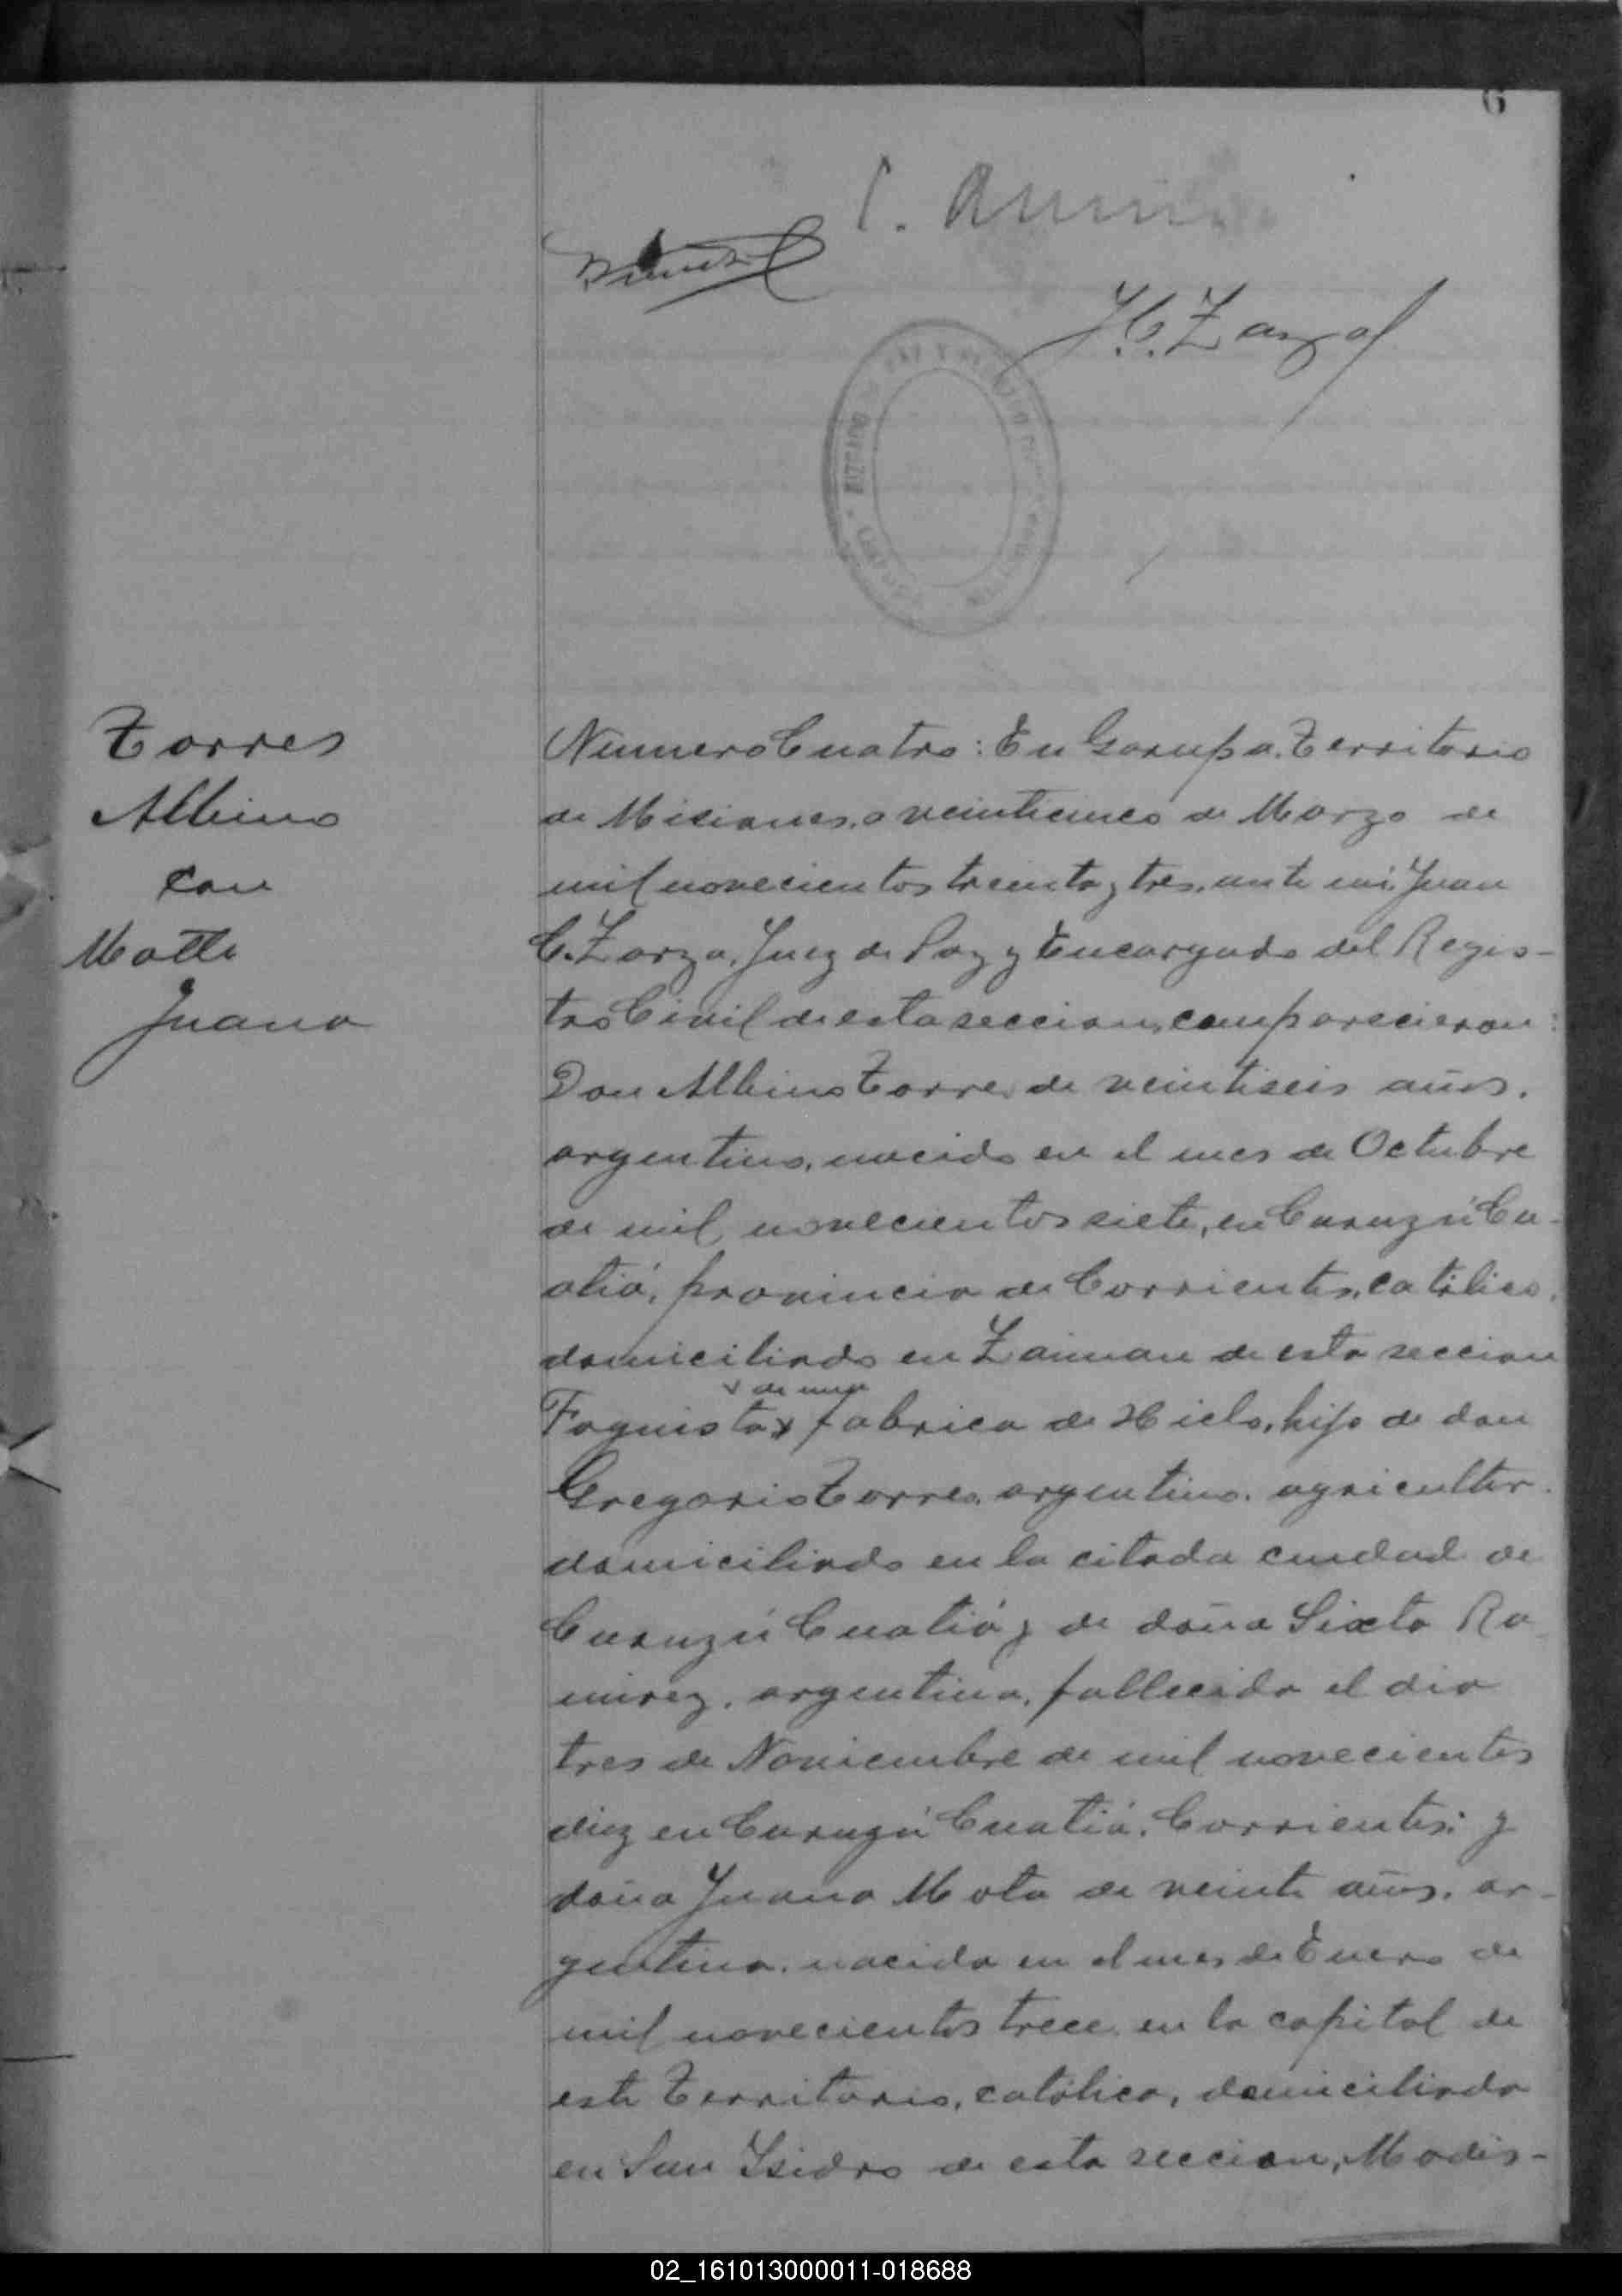 6
J. C. Zarza
JUZGADO
Torres
Albino
con
Motta
Juana
Numero Cuatro: En Garupa. Territorio
de Misiones, a veinticinco de Marzo de
mil novecientos treinta y tres, ante mi, Juan
C. Zarza, Juez de Paz y Encargado del Regis-
tro Civil de esta seccion, comparecieron:
Don Albino Torres de veintiseis años,
argentino, nacido en el mes de Octubre
de mil novecientos siete, en Curuzú Cu-
atiá, provincia de Corrientes, católico,
domiciliado en Zaiman de esta seccion
de una
Foguista fabrica de Hielo, hijo de don
Gregorio Torres, argentino, agricultor,
domiciliado en la citada ciudad de
Curuzú Cuatiá y de doña Sixta Ra-
mirez, argentina, fallecida el dia
tres de Noviembre de mil novecientos
diez en Curuzú Cuatiá, Corrientes; y
doña Juana Mota de veinte años, ar-
gentina, nacida en el mes de Enero de
mil novecientos trece en la capital de
este Territorio, católica, domiciliada
en San Isidro de esta seccion, Modis-
02_161013000011-018688